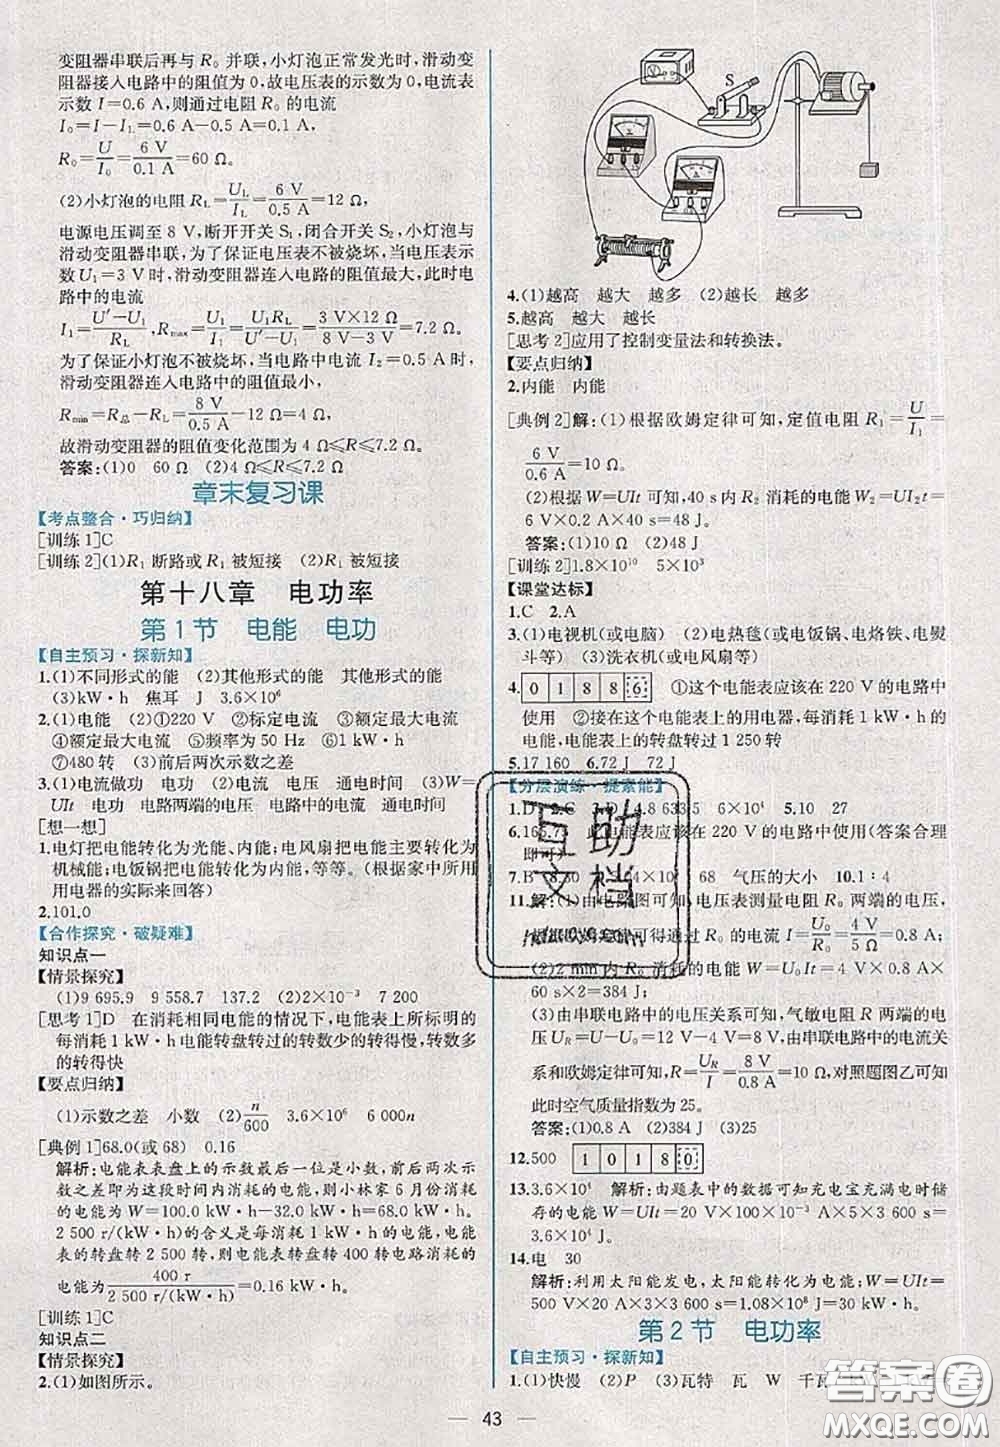 变阻器串联后再与 R₀ 并联,小灯泡正常发光时,滑动变
阻器接入电路中的阻值为 0,故电压表的示数为 0,电流表
示数 I=0.6 A,则通过电阻 R₀ 的电流
I₀=I-I_L=0.6 A-0.5 A=0.1 A,
R₀=U/I₀=6 V/0.1 A=60 Ω。
(2)小灯泡的电阻 R_L=U_L/I_L=6 V/0.5 A=12 Ω,
电源电压调至 8 V,断开开关 S₁、闭合开关 S₂,小灯泡与
滑动变阻器串联,为了保证电压表不被烧坏,当电压表示
数 U₁=3 V 时,滑动变阻器连入电路的阻值最大,此时电
路中的电流
I₁=(U′-U₁)/R_L,R_max=U₁/I₁=U₁R_L/(U′-U₁)=3 V×12 Ω/(8 V-3 V)=7.2 Ω。
为了保证小灯泡不被烧坏,当电路中电流 I₂=0.5 A 时,
滑动变阻器连入电路中的阻值最小,
R_min=R总-R_L=8 V/0.5 A-12 Ω=4 Ω,
故滑动变阻器的阻值变化范围为 4 Ω≤R≤7.2 Ω。
答案:(1)0 60 Ω (2)4 Ω≤R≤7.2 Ω
章末复习课
【考点整合·巧归纳】
[训练 1]C
[训练 2](1)R₁ 断路或 R₁ 被短接 (2)R₁ 被短接
第十八章 电功率
第 1 节 电能 电功
【自主预习·探新知】
1.(1)不同形式的能 (2)其他形式的能 其他形式的能
(3)kW·h 焦耳 J 3.6×10⁶
2.(1)电能 (2)①220 V ②标定电流 ③额定最大电流
④额定最大电流 ⑤频率为 50 Hz ⑥1 kW·h
⑦480 转 (3)前后两次示数之差
3.(1)电流做功 电功 (2)电流 电压 通电时间 (3)W=
UIt 电功 电路两端的电压 电路中的电流 通电时间
[想一想]
1.电灯把电能转化为光能、内能;电风扇把电能主要转化为
机械能;电饭锅把电能转化为内能,等等。(根据家中所用
用电器的实际来回答)
2.101.0
【合作探究·破疑难】
知识点一
【情景探究】
(1)9 695.9 9 558.7 137.2 (2)2×10⁻³ 7 200
[思考 1]D 在消耗相同电能的情况下,电能表上所标明的
每消耗 1 kW·h 电能转盘转过的转数少的转得慢,转数多
的转得快
【要点归纳】
(1)示数之差 小数 (2)n/600 3.6×10⁶ 6 000n
[典例 1]68.0(或 68) 0.16
解析:电能表表盘上的示数最后一位是小数,前后两次
示数之差即为这段时间内消耗的电能,则小林家 6 月份消
耗的电能为 W=100.0 kW·h-32.0 kW·h=68.0 kW·h。
2 500 r/(kW·h)的含义是每消耗 1 kW·h 的电能,电能
表的转盘转 2 500 转,则电能表转盘转 400 转电路消耗的
电能为400 r/2 500 r/(kW·h)=0.16 kW·h。
[训练 1]C
知识点二
【情景探究】
2.(1)如图所示。
S
4.(1)越高 越大 越多 (2)越长 越多
5.越高 越大 越长
[思考 2]应用了控制变量法和转换法。
【要点归纳】
2.内能 内能
[典例 2]解:(1)根据欧姆定律可知,定值电阻 R₁=U/I₁=
6 V/0.6 A=10 Ω。
(2)根据 W=UIt 可知,40 s 内 R₂ 消耗的电能 W₂=UI₂t=
6 V×0.2 A×40 s=48 J。
答案:(1)10 Ω (2)48 J
[训练 2]1.8×10¹⁰ 5×10³
【课堂达标】
1.C 2.A
3.(1)电视机(或电脑) (2)电热毯(或电饭锅、电烙铁、电熨
斗等) (3)洗衣机(或电风扇等)
4. 0 1 8 8 6 ①这个电能表应该在 220 V 的电路中
使用 ②接在这个电能表上的用电器,每消耗 1 kW·h 的
电能,电能表上的转盘转过 1 250 转
5.17 160 6.72 J 72 J
【分层演练·提素能】
1.D 2.C 3.D 4.8 633.5 6×10⁴ 5.10 27
6. 此电能表应该在 220 V 的电路中使用(答案合理
即可)
7.B 8.30 68 气压的大小 10.1:4
11.解:(1)由电路图可知,电压表测量电阻 R₀ 两端的电压,
可得通过 R₀ 的电流 I=U₀/R₀=4 V/5 Ω=0.8 A;
(2)2 min 内 R₀ 消耗的电能 W=U₀It=4 V×0.8 A×
60 s×2=384 J;
(3)由串联电路中的电压关系可知,气敏电阻 R 两端的电
压 U_R=U-U₀=12 V-4 V=8 V,由串联电路中的电流关
系和欧姆定律可知,R=U_R/I=8 V/0.8 A=10 Ω,对照题图乙可知
此时空气质量指数为 25。
答案:(1)0.8 A (2)384 J (3)25
12.500 1 0 1 8 0
13.3.6×10⁴ 解析:由题表中的数据可知充电宝充满电时储
存的电能 W=UIt=20 V×1000×10⁻³ A×5×3 600 s=
3.6×10⁴ J。
14.电 30
解析:利用太阳能发电,太阳能转化为电能;W=UIt=
500 V×20 A×3×3 600 s=1.08×10⁸ J=30 kW·h。
第 2 节 电功率
【自主预习·探新知】
1.(1)快慢 (2)P (3)瓦特 瓦 W 千瓦
43
互助
文档
答案圈
MXQE.COM